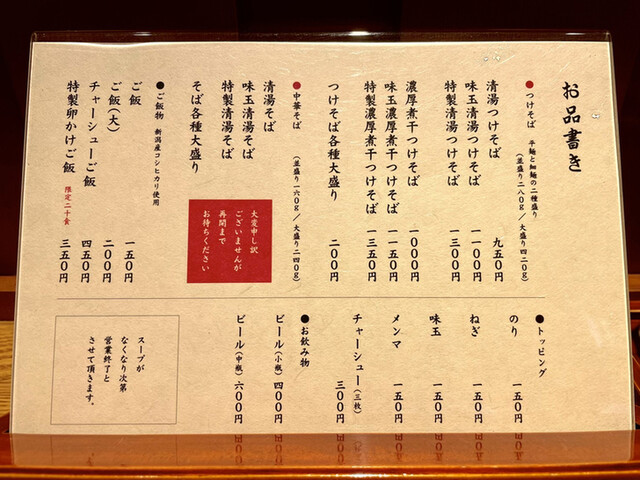 お品書き
●つけそば 平麺と細麺の二種盛り
(並盛り二八〇g/大盛り四二〇g)
清湯つけそば 九五〇円
味玉清湯つけそば 一一〇〇円
特製清湯つけそば 一三〇〇円
濃厚煮干つけそば 一〇〇〇円
味玉濃厚煮干つけそば 一一五〇円
特製濃厚煮干つけそば 一三五〇円
つけそば各種大盛り 二〇〇円
●中華そば (並盛り一六〇g/大盛り二四〇g)
清湯そば
味玉清湯そば
特製清湯そば
そば各種大盛り
大変申し訳
ございませんが
再開まで
お待ちください
●ご飯物 新潟産コシヒカリ使用
ご飯 一五〇円
ご飯(大) 二〇〇円
チャーシューご飯 四五〇円
特製卵かけご飯 限定二十食 三五〇円
●トッピング
のり 一五〇円
ねぎ 一五〇円
味玉 一五〇円
メンマ 一五〇円
チャーシュー(三枚) 三〇〇円
●お飲み物
ビール(小瓶) 四〇〇円
ビール(中瓶) 六〇〇円
スープが
なくなり次第
営業終了と
させて頂きます。